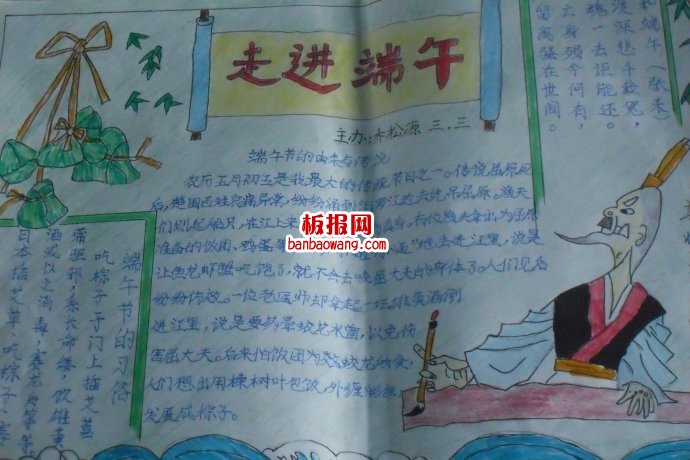 走进端午
主办:朱松源 三.三
端午节的由来与传说
农历五月初五是我最大的传统节日之一。传说屈原死
后,楚国百姓哀痛异常,纷纷涌到汨罗江边去凭吊屈原。渔夫
们划起船只,在江上来
身。有位渔夫拿出为屈原
准备的饭团、鸡蛋等
地丢进江里,说是
让鱼龙虾蟹吃饱了,就不会去咬屈大夫的身体了。人们见后
纷纷仿效。一位老医师却拿起一坛雄黄酒倒
进江里,说是要药晕蛟龙水兽,以免伤
害屈大夫。后来怕饭团为蛟龙所食,
人们想出用楝树叶包饭,外缠彩丝,
发展成棕子。
板报网
banbaowang.com
和端午(张耒)
深悲千载冤,
魂一去讵能还。
亡身殒今何有,
留离骚在世间。
端午节的习俗
吃粽子于门上插艾菖
蒲驱邪,系长命缕,饮雄黄
酒或以之消毒,赛龙舟等等。
日本插艾草,吃粽子,赛